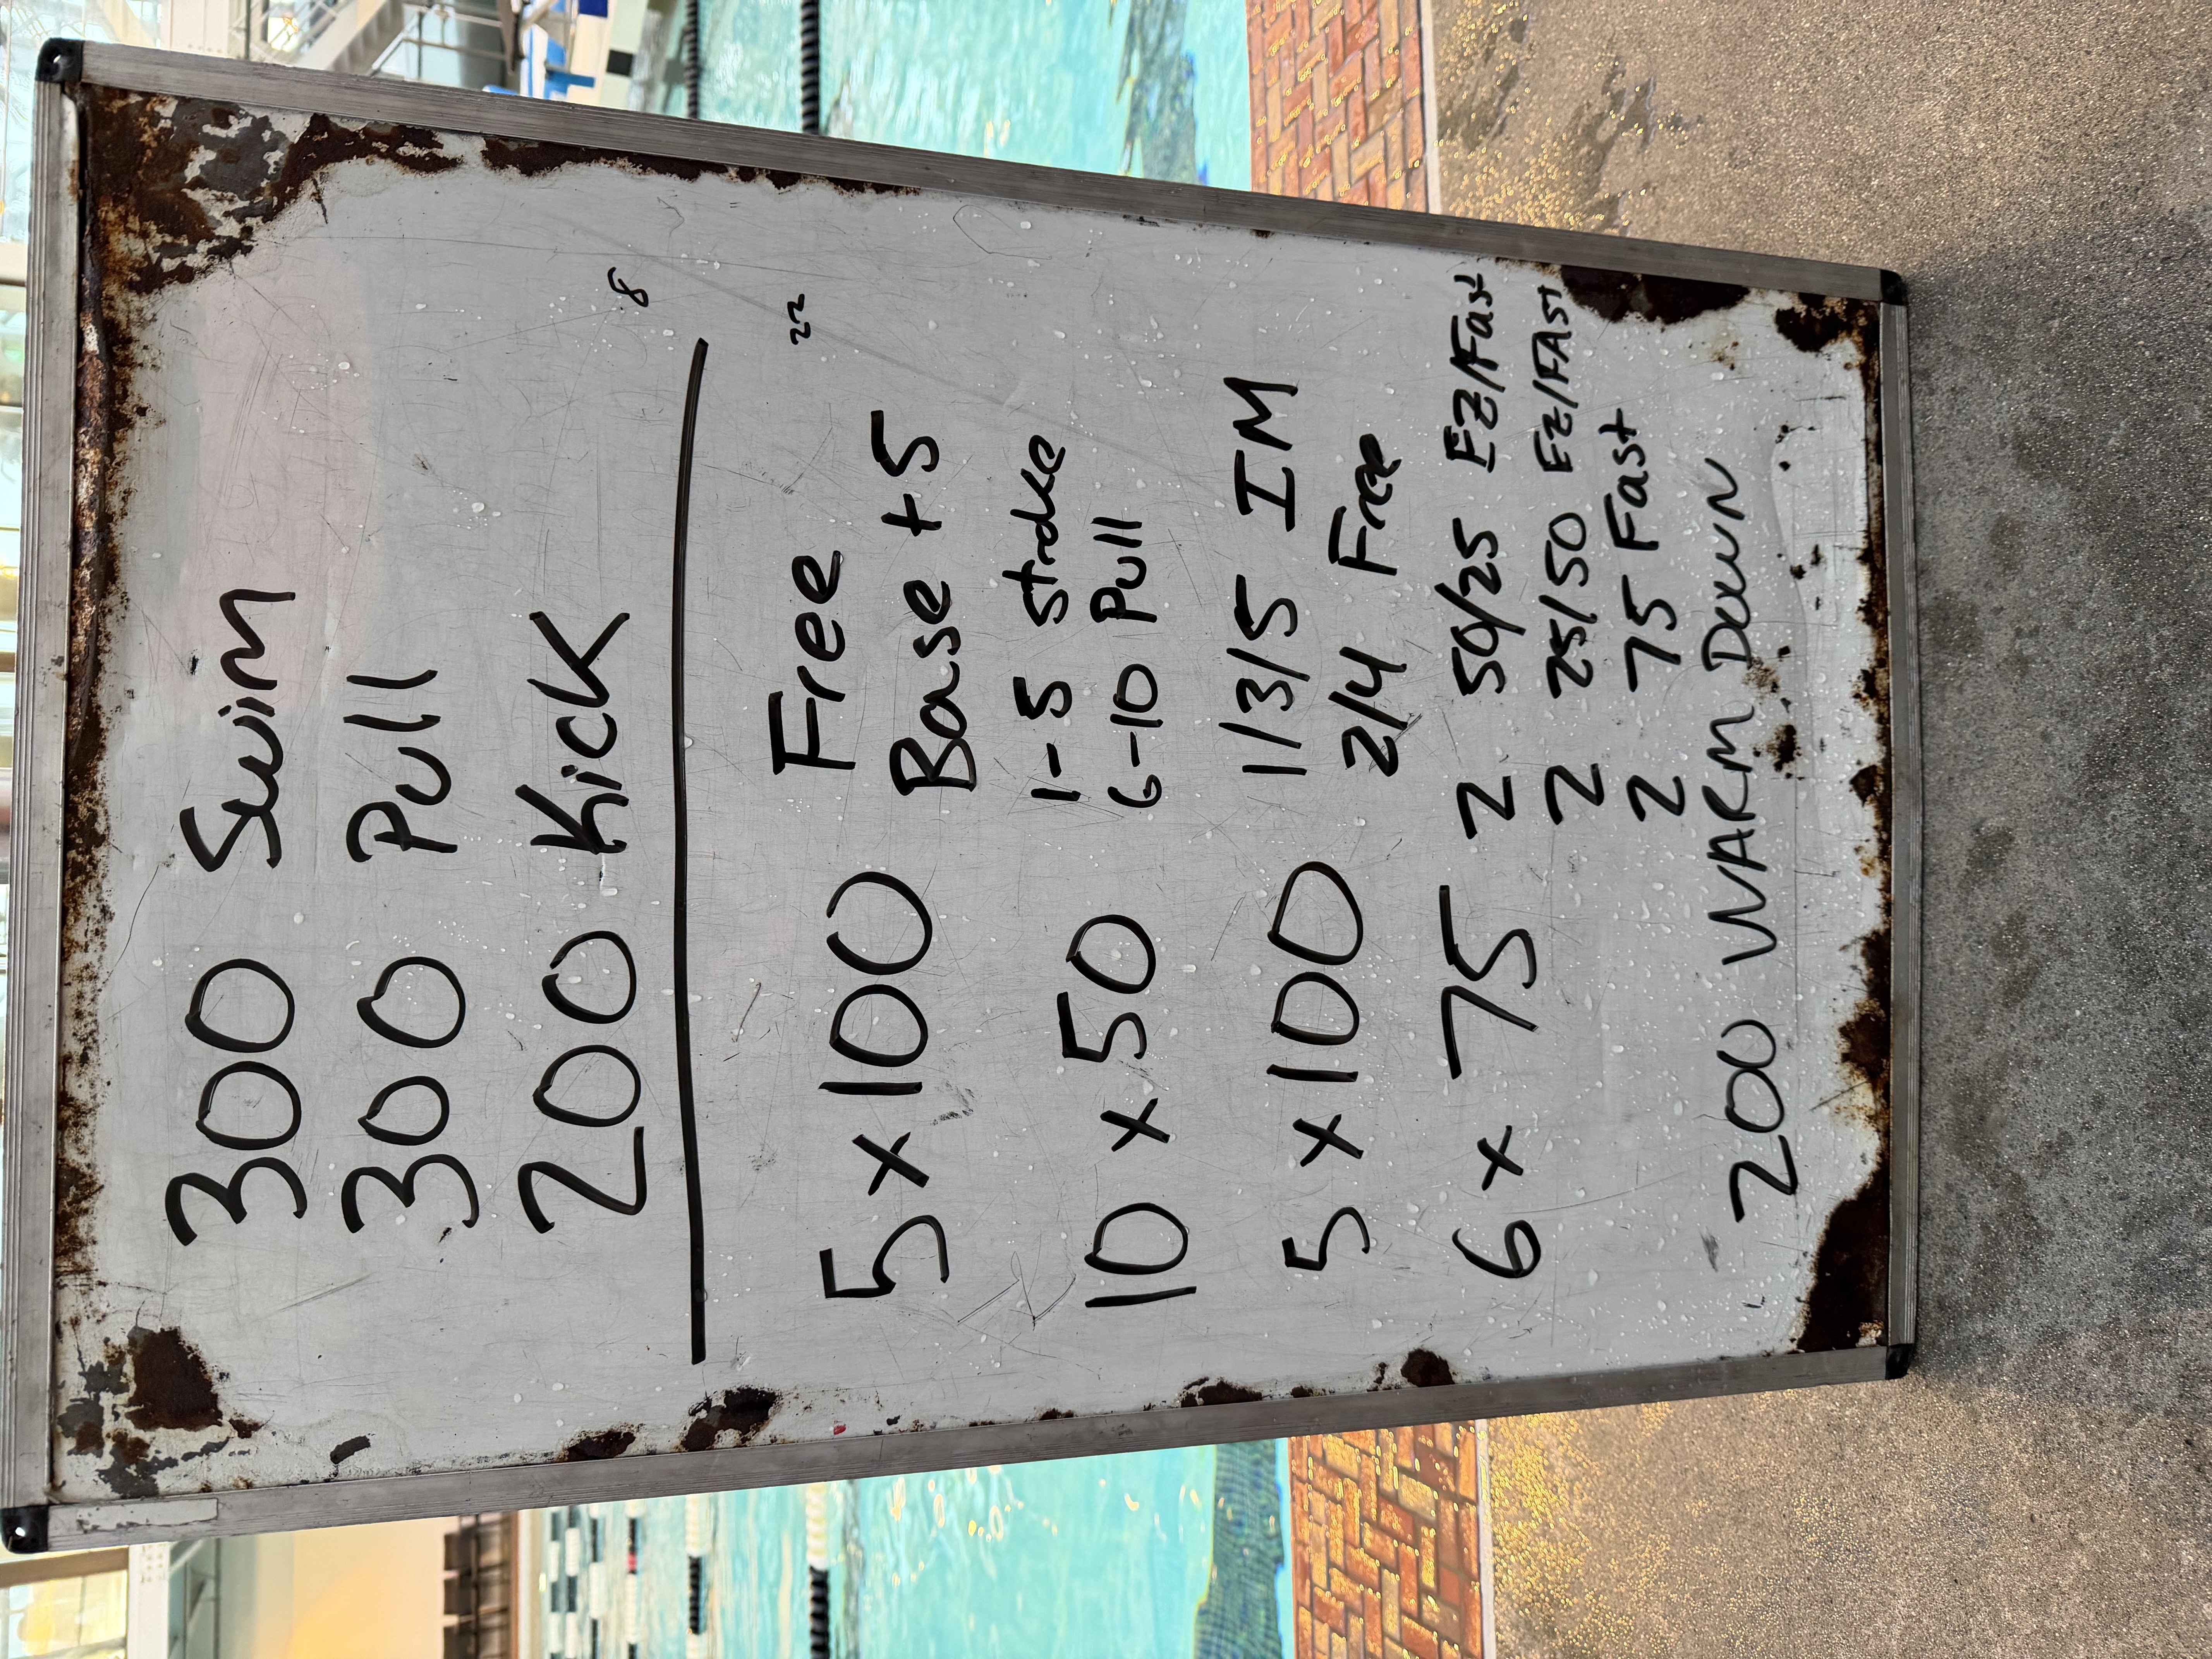 300 Swim
300 Pull
200 Kick
8
22
5 x 100 Free
Base +5
10 x 50 1-5 stroke
6-10 Pull
5 x 100 1/3/5 IM
2/4 Free
6 x 75 2 50/25 EZ/Fast
2 25/50 EZ/FAST
2 75 Fast
200 WARM DOWN